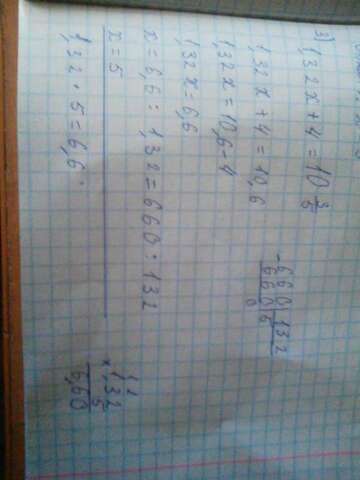 3) 1,32x + 4 = 10 3/5
1,32x + 4 = 10,6
1,32x = 10,6 - 4
1,32x = 6,6
x = 6,6 : 1,32 = 660 : 132
x = 5
1,32 · 5 = 6,6
-660|132
660 5
0
1 1
× 1,32
5
6,60